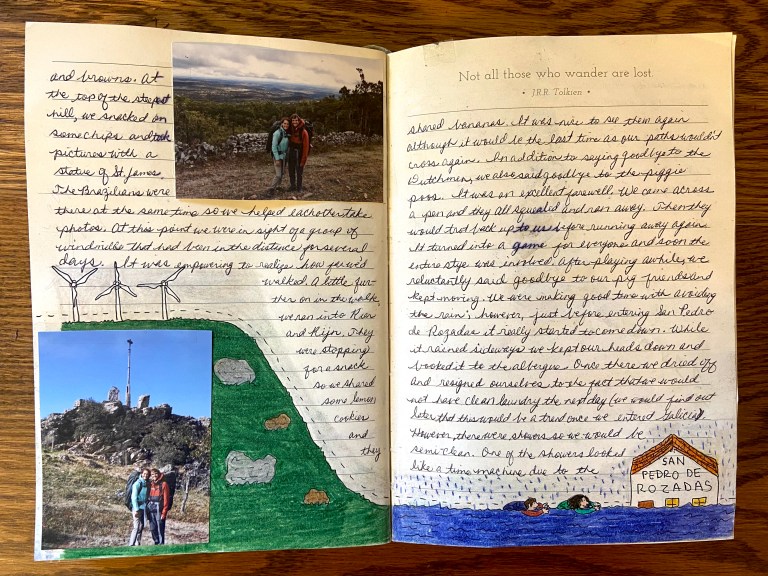 and browns. At
the top of the steepest
hill, we snacked on
some chips and took
pictures with a
statue of St. James.
The Brazilians were
there at the same time so we helped eachother take
photos. At this point we were in sight of a group of
windmills that had been in the distance for several
days. It was empowering to realize how far we'd
walked. A little fur-
ther on in the walk,
we ran into Kien
and Kijn. They
were stopping
for a snack
so we shared
some lemon
cookies
and
they
Not all those who wander are lost.
• J.R.R. Tolkien •
shared bananas. It was nice to see them again
although it would be the last time as our paths wouldn't
cross again. In addition to saying goodbye to the
Dutchmen, we also said goodbye to the piggie
poos. It was an excellent farewell. We came across
a pen and they all squealed and ran away. Then they
would trot back up to us before running away again.
It turned into a game for everyone and soon the
entire stye was involved. After playing awhile, we
reluctantly said goodbye to our pig friends and
kept moving. We were making good time with avoiding
the rain; however, just before entering San Pedro
de Rozadas it really started to come down. While
it rained sideways we kept our heads down and
booked it to the albergue. Once there we dried off
and resigned ourselves to the fact that we would
not have clean laundry the next day (we would find out
later that this would be a trend once we entered Galicia).
However, there were showers so we would be
semi clean. One of the showers looked
like a time machine due to the
SAN
PEDRO DE
ROZADAS